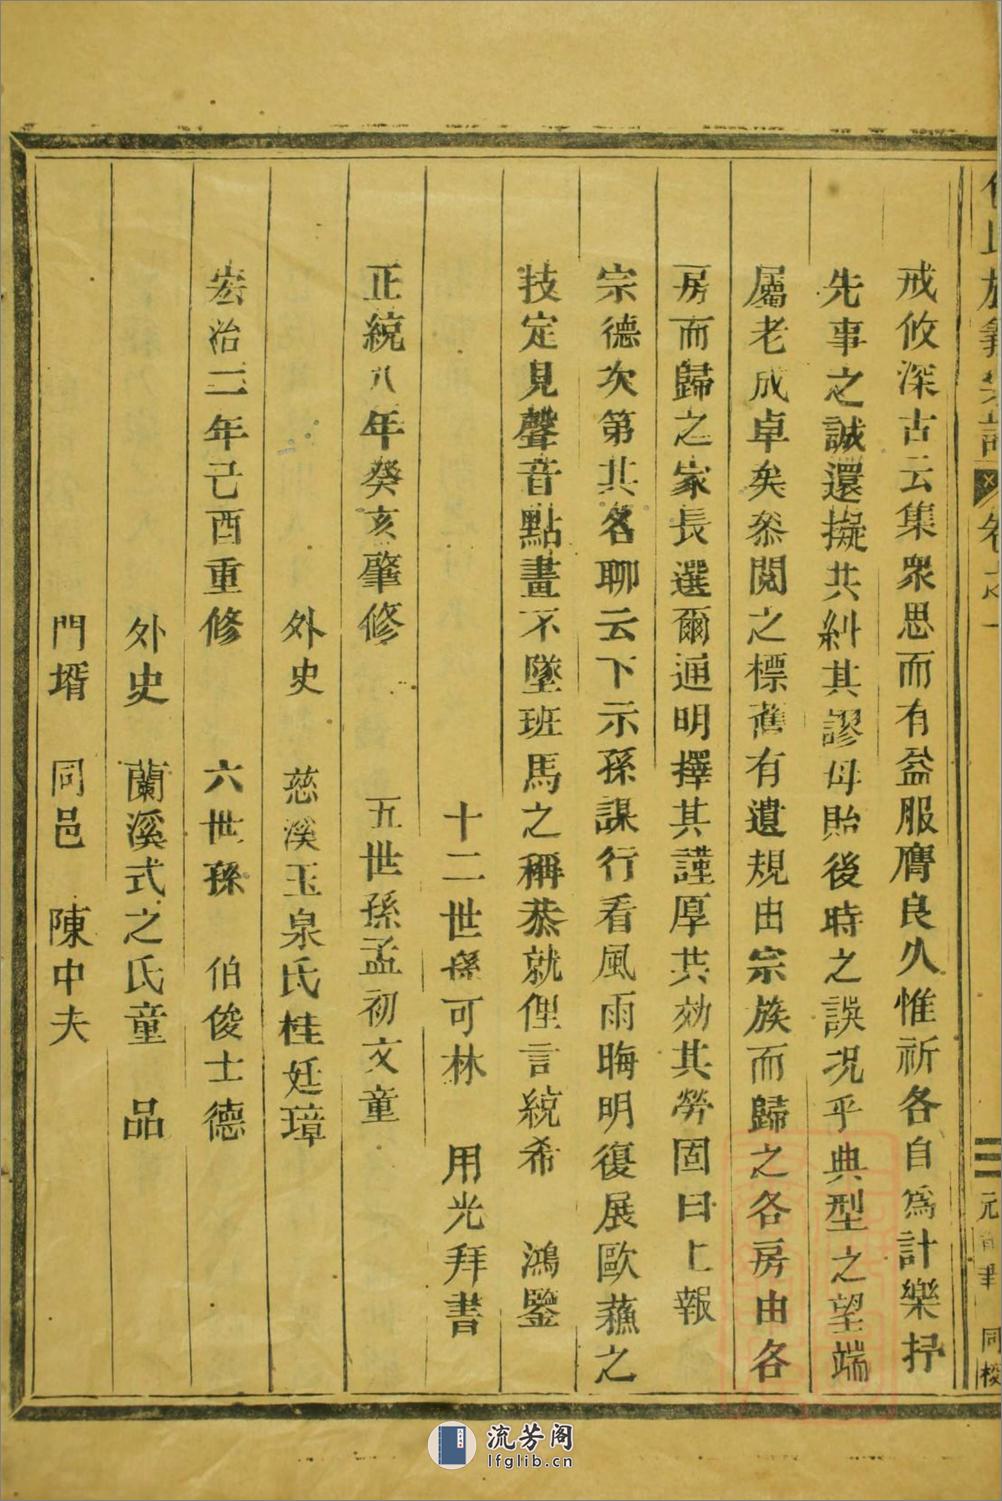 戒攸深古云集衆思而有益服膺良久惟祈各自爲計樂抒
先事之誠還擬共糾其謬毋貽後時之誤況乎典型之望端
屬老成卓矣叅閱之標舊有遺規由宗族而歸之各房由各
房而歸之家長選爾通明擇其謹厚共効其勞固曰上報
宗德次第其名聊云下示孫謀行看風雨晦明復展歐蘓之
技定見聲音點畫不墜班馬之稱恭就俚言統希 鴻鑒
十二世孫可林 用光拜書
正統八年癸亥肇修 五世孫孟初文童
外史 慈溪玉泉氏桂廷璋
宏治二年己酉重修 六世孫 伯俊士德
外史 蘭溪式之氏童 品
門壻 同邑 陳中夫
氏族 卷之一
三 同校
流芳阁
lfglib.cn